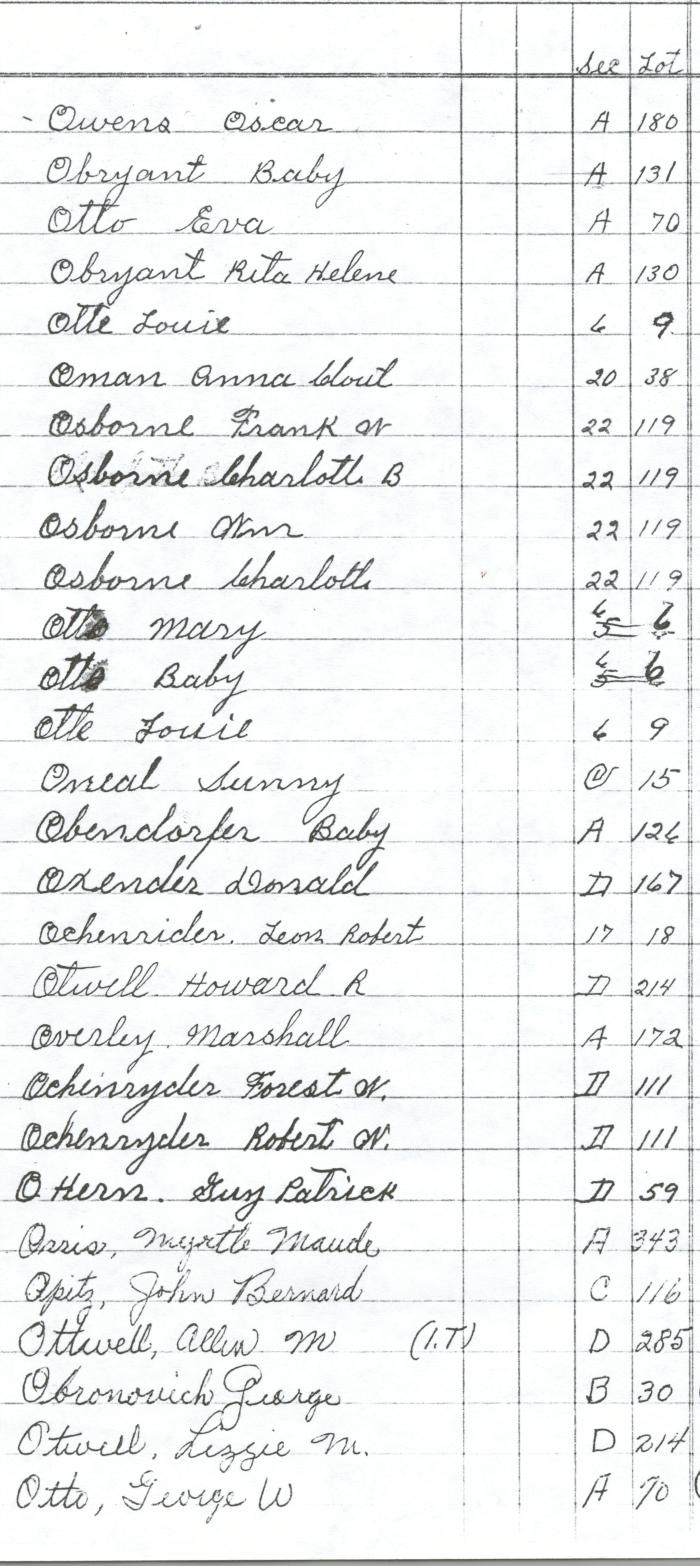 Sec Lot
- Owens Oscar A 180
Obryant Baby A 131
Otto Eva A 70
Obryant Rita Helene A 130
Otte Louie 6 9
Oman Anna 20 38
Osborne Frank W 22 119
Osborne Charlotte B 22 119
Osborne Wm 22 119
Osborne Charlotte 22 119
Otto Mary 6 6
Otto Baby 6 6
Otte Louie 6 9
Oneal Sunny C 15
Obendorfer Baby A 126
Oxender Donald D 167
Ochenrider. Leon Robert 17 18
Otwell Howard R D 214
Overley. Marshall A 172
Ochinryder Forest W. D 111
Ochenryder Robert W. D 111
O Hern. Guy Patrick D 59
Myrtle Maude A 343
Opitz, John Bernard C 116
Ottwell, Allen M (I.T) D 285
Obronovich George B 30
Otwell, Lizzie M. D 214
Otto, George W A 70